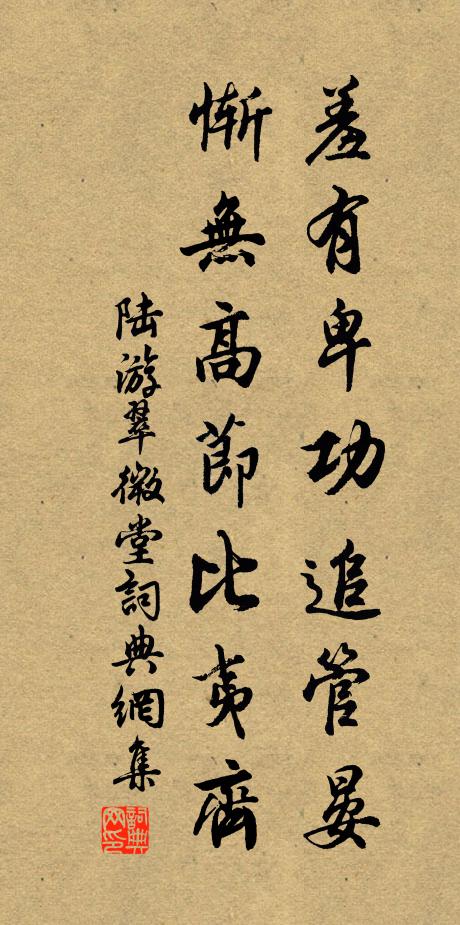 羞有卑功追管晏
慚無高節比夷齊
陸游翠微堂詞典網集
詞典网印